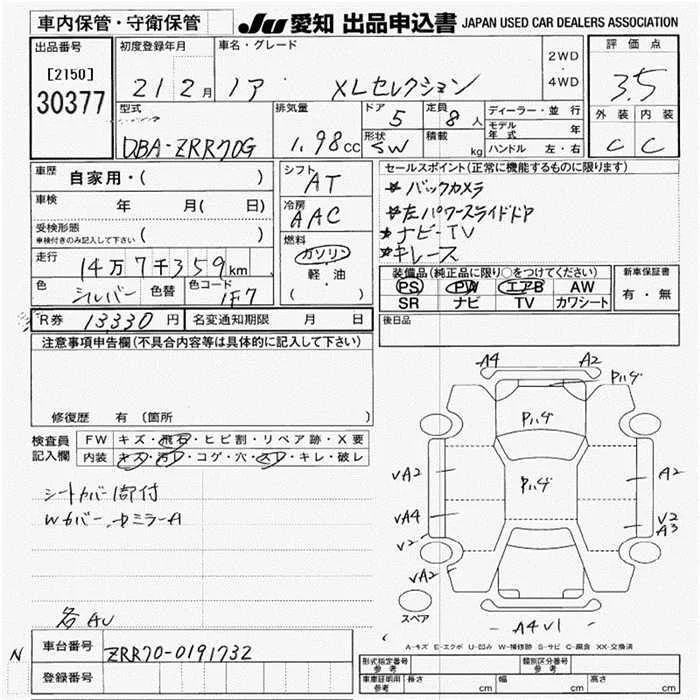 車内保管・守衛保管
JU 愛知 出品申込書 JAPAN USED CAR DEALERS ASSOCIATION
出品番号
[2150]
30377
初度登録年月
21 2月
車名・グレード
ノア XLセレクション
2WD
4WD
評価点
3.5
外装 内装
C C
型式
DBA-ZRR70G
排気量
1.98cc
ドア 5
定員 8人
形状 SW
積載 kg
ディーラー・並行
モデル年式 年
ハンドル 左・右
車歴 自家用・( )
車検 年 月( 日)
受検形態
車検付きのみ記入して下さい ( )
走行 14万7千359km
色 シルバー 色替 色コード 1F7
シフト AT
冷房 AAC
燃料
ガソリン
軽油
( ・ )
セールスポイント(正常に機能するものに限ります)
* バックカメラ
* 左パワースライドドア
* ナビ-TV
* キレース
装備品(純正品に限り○をつけてください)
PS PW エアB AW
SR ナビ TV カワシート
新車保証書
有・無
R券 13330円 名変通知期限 月 日
後日品
注意事項申告欄(不具合内容等は具体的に記入して下さい)
修復歴 有(箇所 )
検査員記入欄
FW キズ・飛石・ヒビ割・リペア跡・X要
内装 キズ・汚レ・コゲ・穴・スレ・キレ・破レ
シートカバー 付
Wカバー、ドミラーA
各AU
A4 A2
Pハゲ
Pハゲ
Pハゲ
VA2
A2
VA4
V2
A3
V2
VA2
スペア
A4V1
A-キズ E-エクボ U-凹み W-補修跡 S-サビ C-腐食 XX-交換済
N
車台番号 ZRR70-0191732
登録番号
型式指定番号 参考
類別区分番号 参考
車車証明用 参考 長さ cm 幅 cm 高さ cm